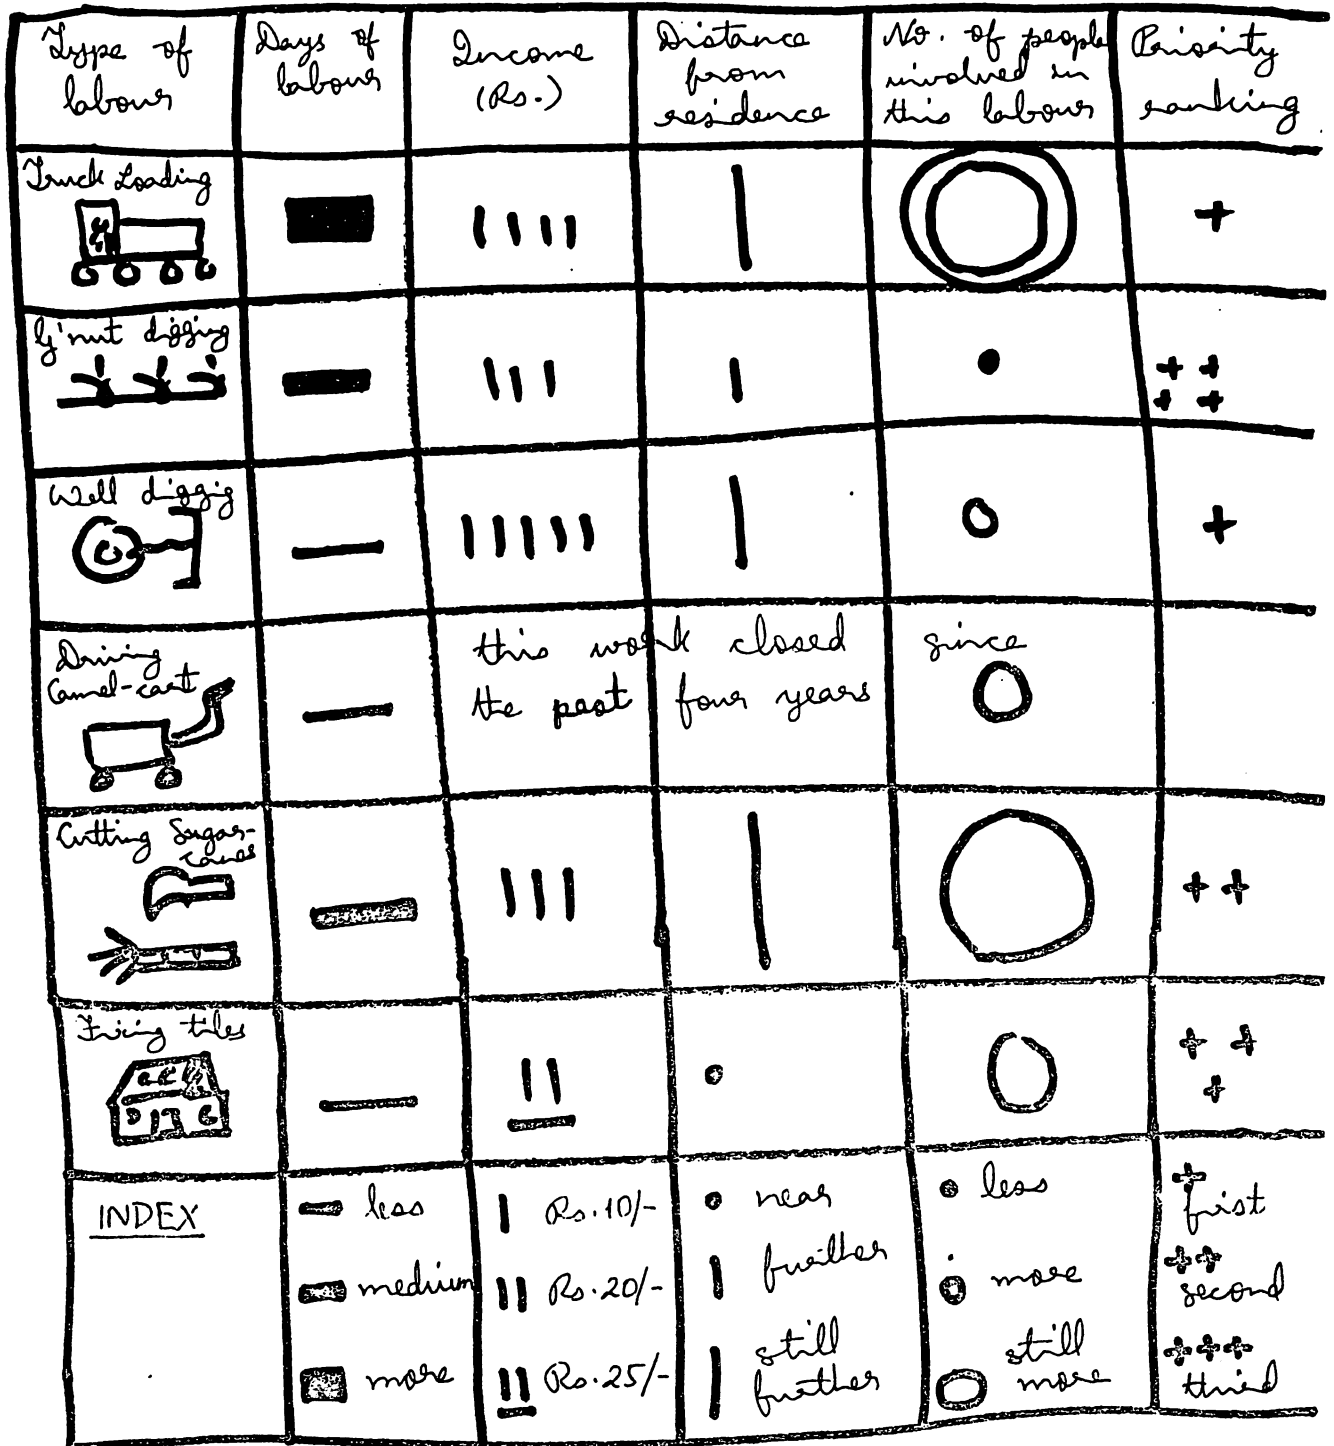 Type of
labour
Days of
labour
Income
(Rs.)
Distance
from
residence
No. of people
involved in
this labour
Priority
ranking
Truck Loading
G'nut digging
Well diggig
Driving
Camel-cart
this work closed since
the past four years
Cutting Sugar-
canes
Firing tiles
INDEX
less
medium
more
Rs.10/-
Rs.20/-
Rs.25/-
near
further
still
further
less
more
still
more
first
second
third